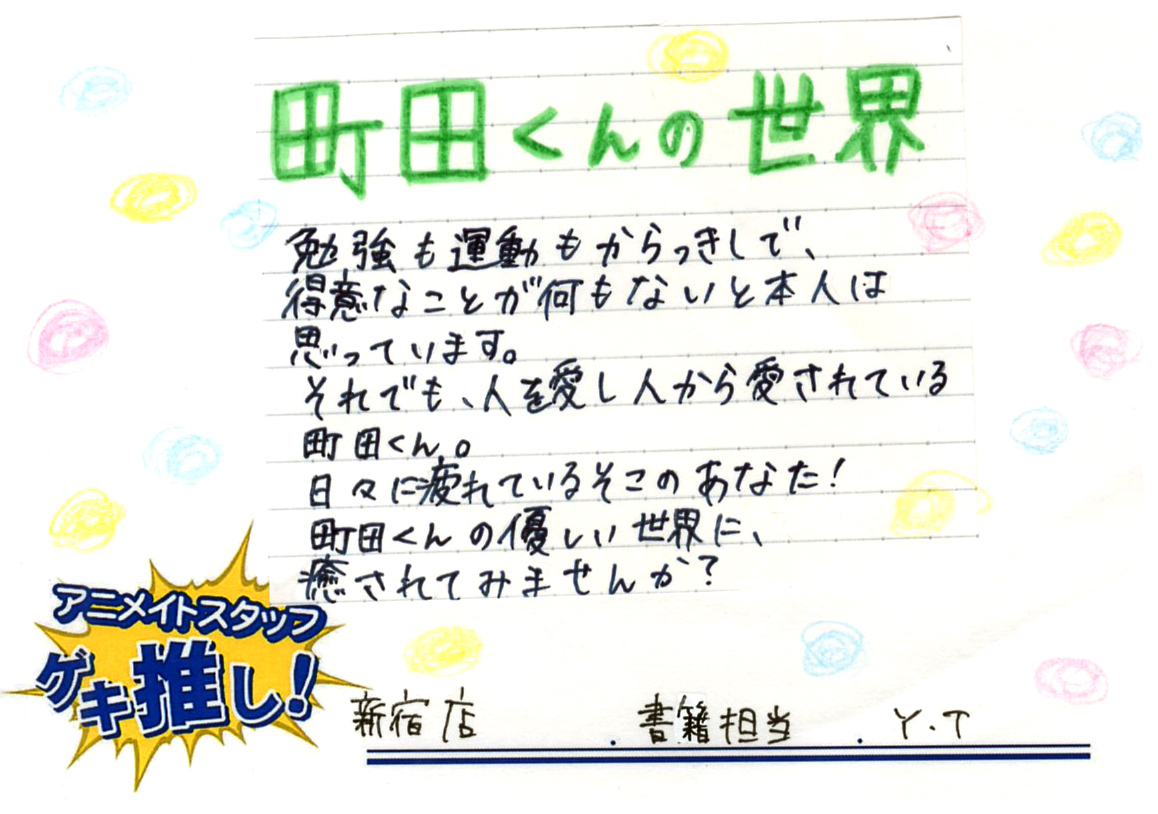 町田くんの世界
勉強も運動もからっきしで、
得意なことが何もないと本人は
思っています。
それでも、人を愛し人から愛されている
町田くん。
日々に疲れているそこのあなた!
町田くんの優しい世界に、
癒されてみませんか?
アニメイトスタッフ
ゲキ推し!
新宿店 . 書籍担当 . Y.T